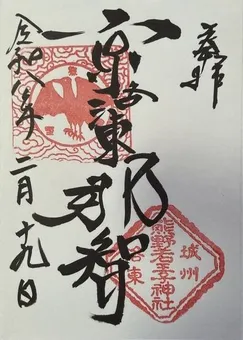 奉拝
京洛東
那智
令和八年二月十九日
城州
熊野若王子神社
洛東